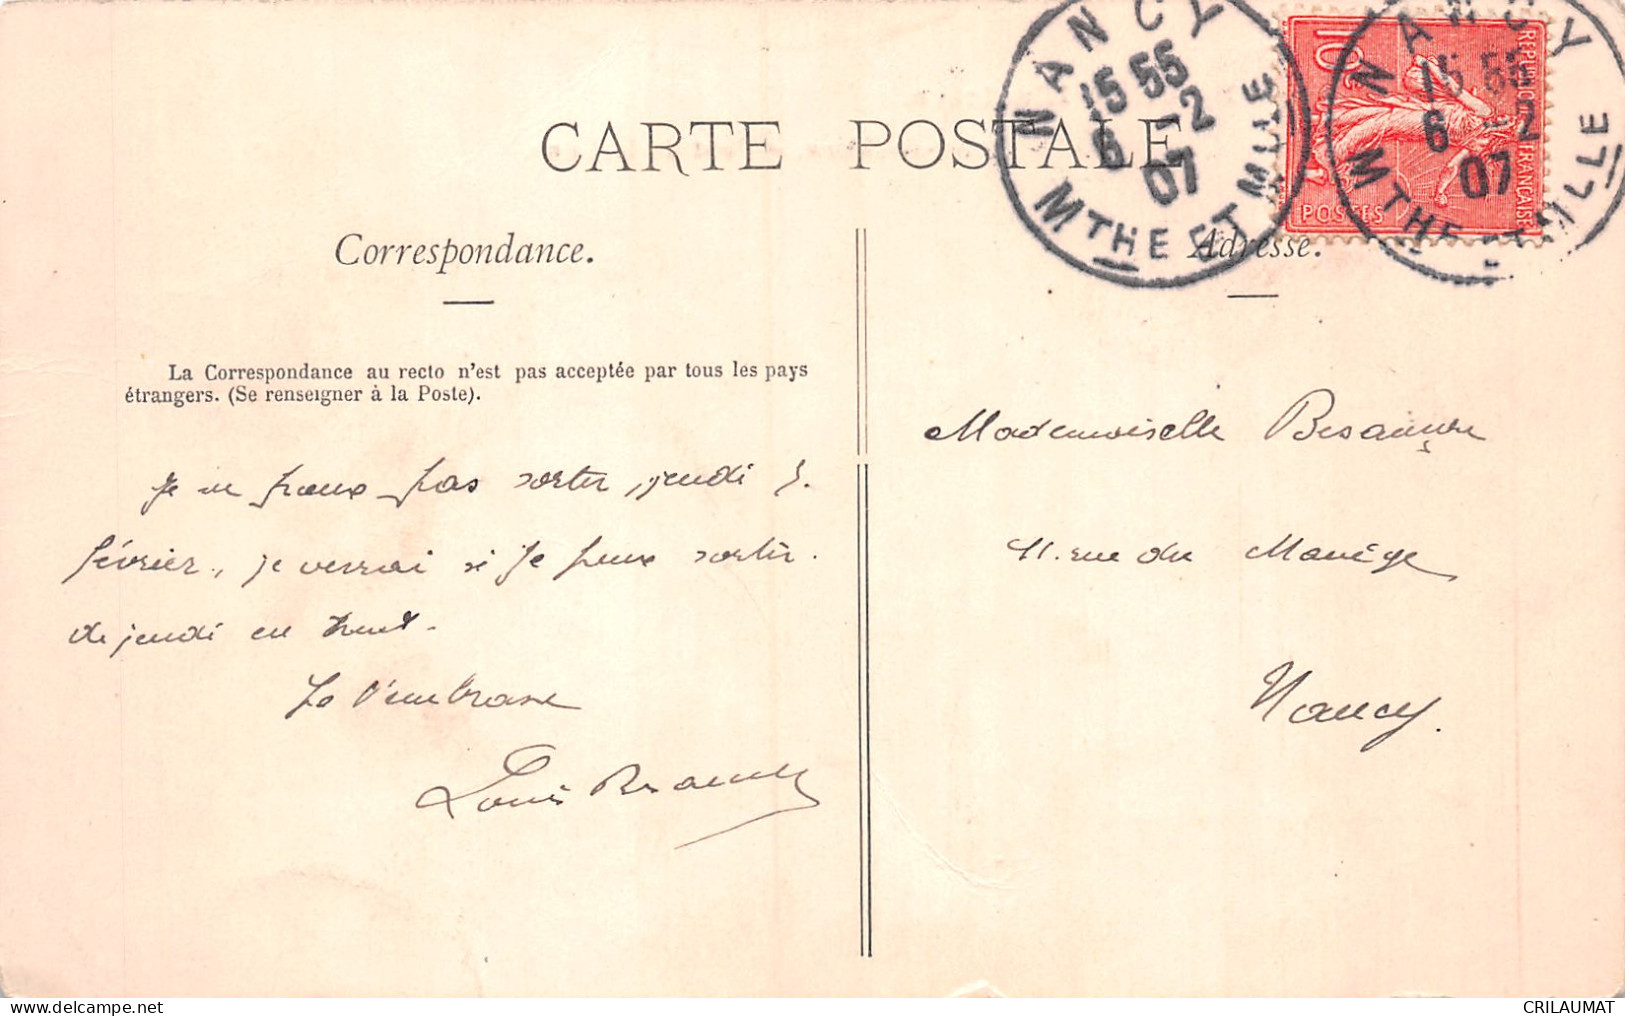 CARTE POSTALE
NANCY
15 55
6 -2
07
MTHE ET MLLE
NANCY
15 55
6 -2
07
MTHE ET MLLE
10c
REPUBLIQUE FRANÇAISE
POSTES
Correspondance.
Adresse.
La Correspondance au recto n'est pas acceptée par tous les pays
étrangers. (Se renseigner à la Poste).
Je ne peux pas sortir, jeudi
février, je verrai si je peux sortir.
de jeudi en huit.
Je t'embrasse
Louis
Mademoiselle
11. rue du Manège
Nancy.
delcampe.net
CRILAUMAT